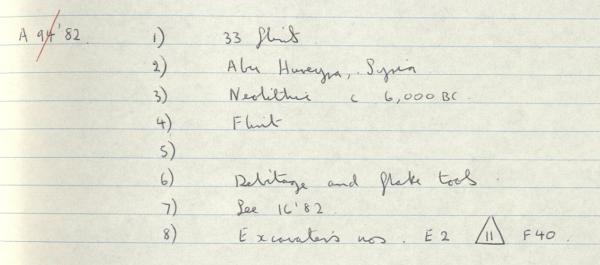 A 94'82 1) 33 flints
2) Abu Hureyra, Syria
3) Neolithic c 6,000 BC
4) Flint
5)
6) Debitage and flake tools.
7) See 16'82.
8) Excavater's nos. E2 11 F40.